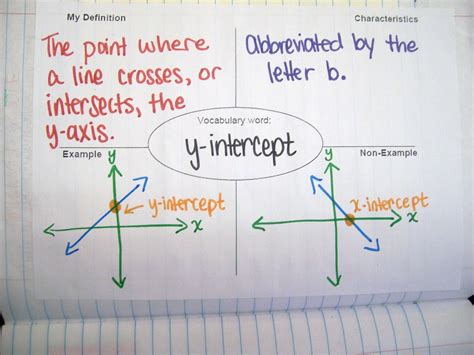 My Definition
The point where
a line crosses, or
intersects, the
y-axis.
Characteristics
Abbreviated by the
letter b.
Vocabulary word:
y-intercept
Example
y
y-intercept
x
Non-Example
y
x-intercept
x